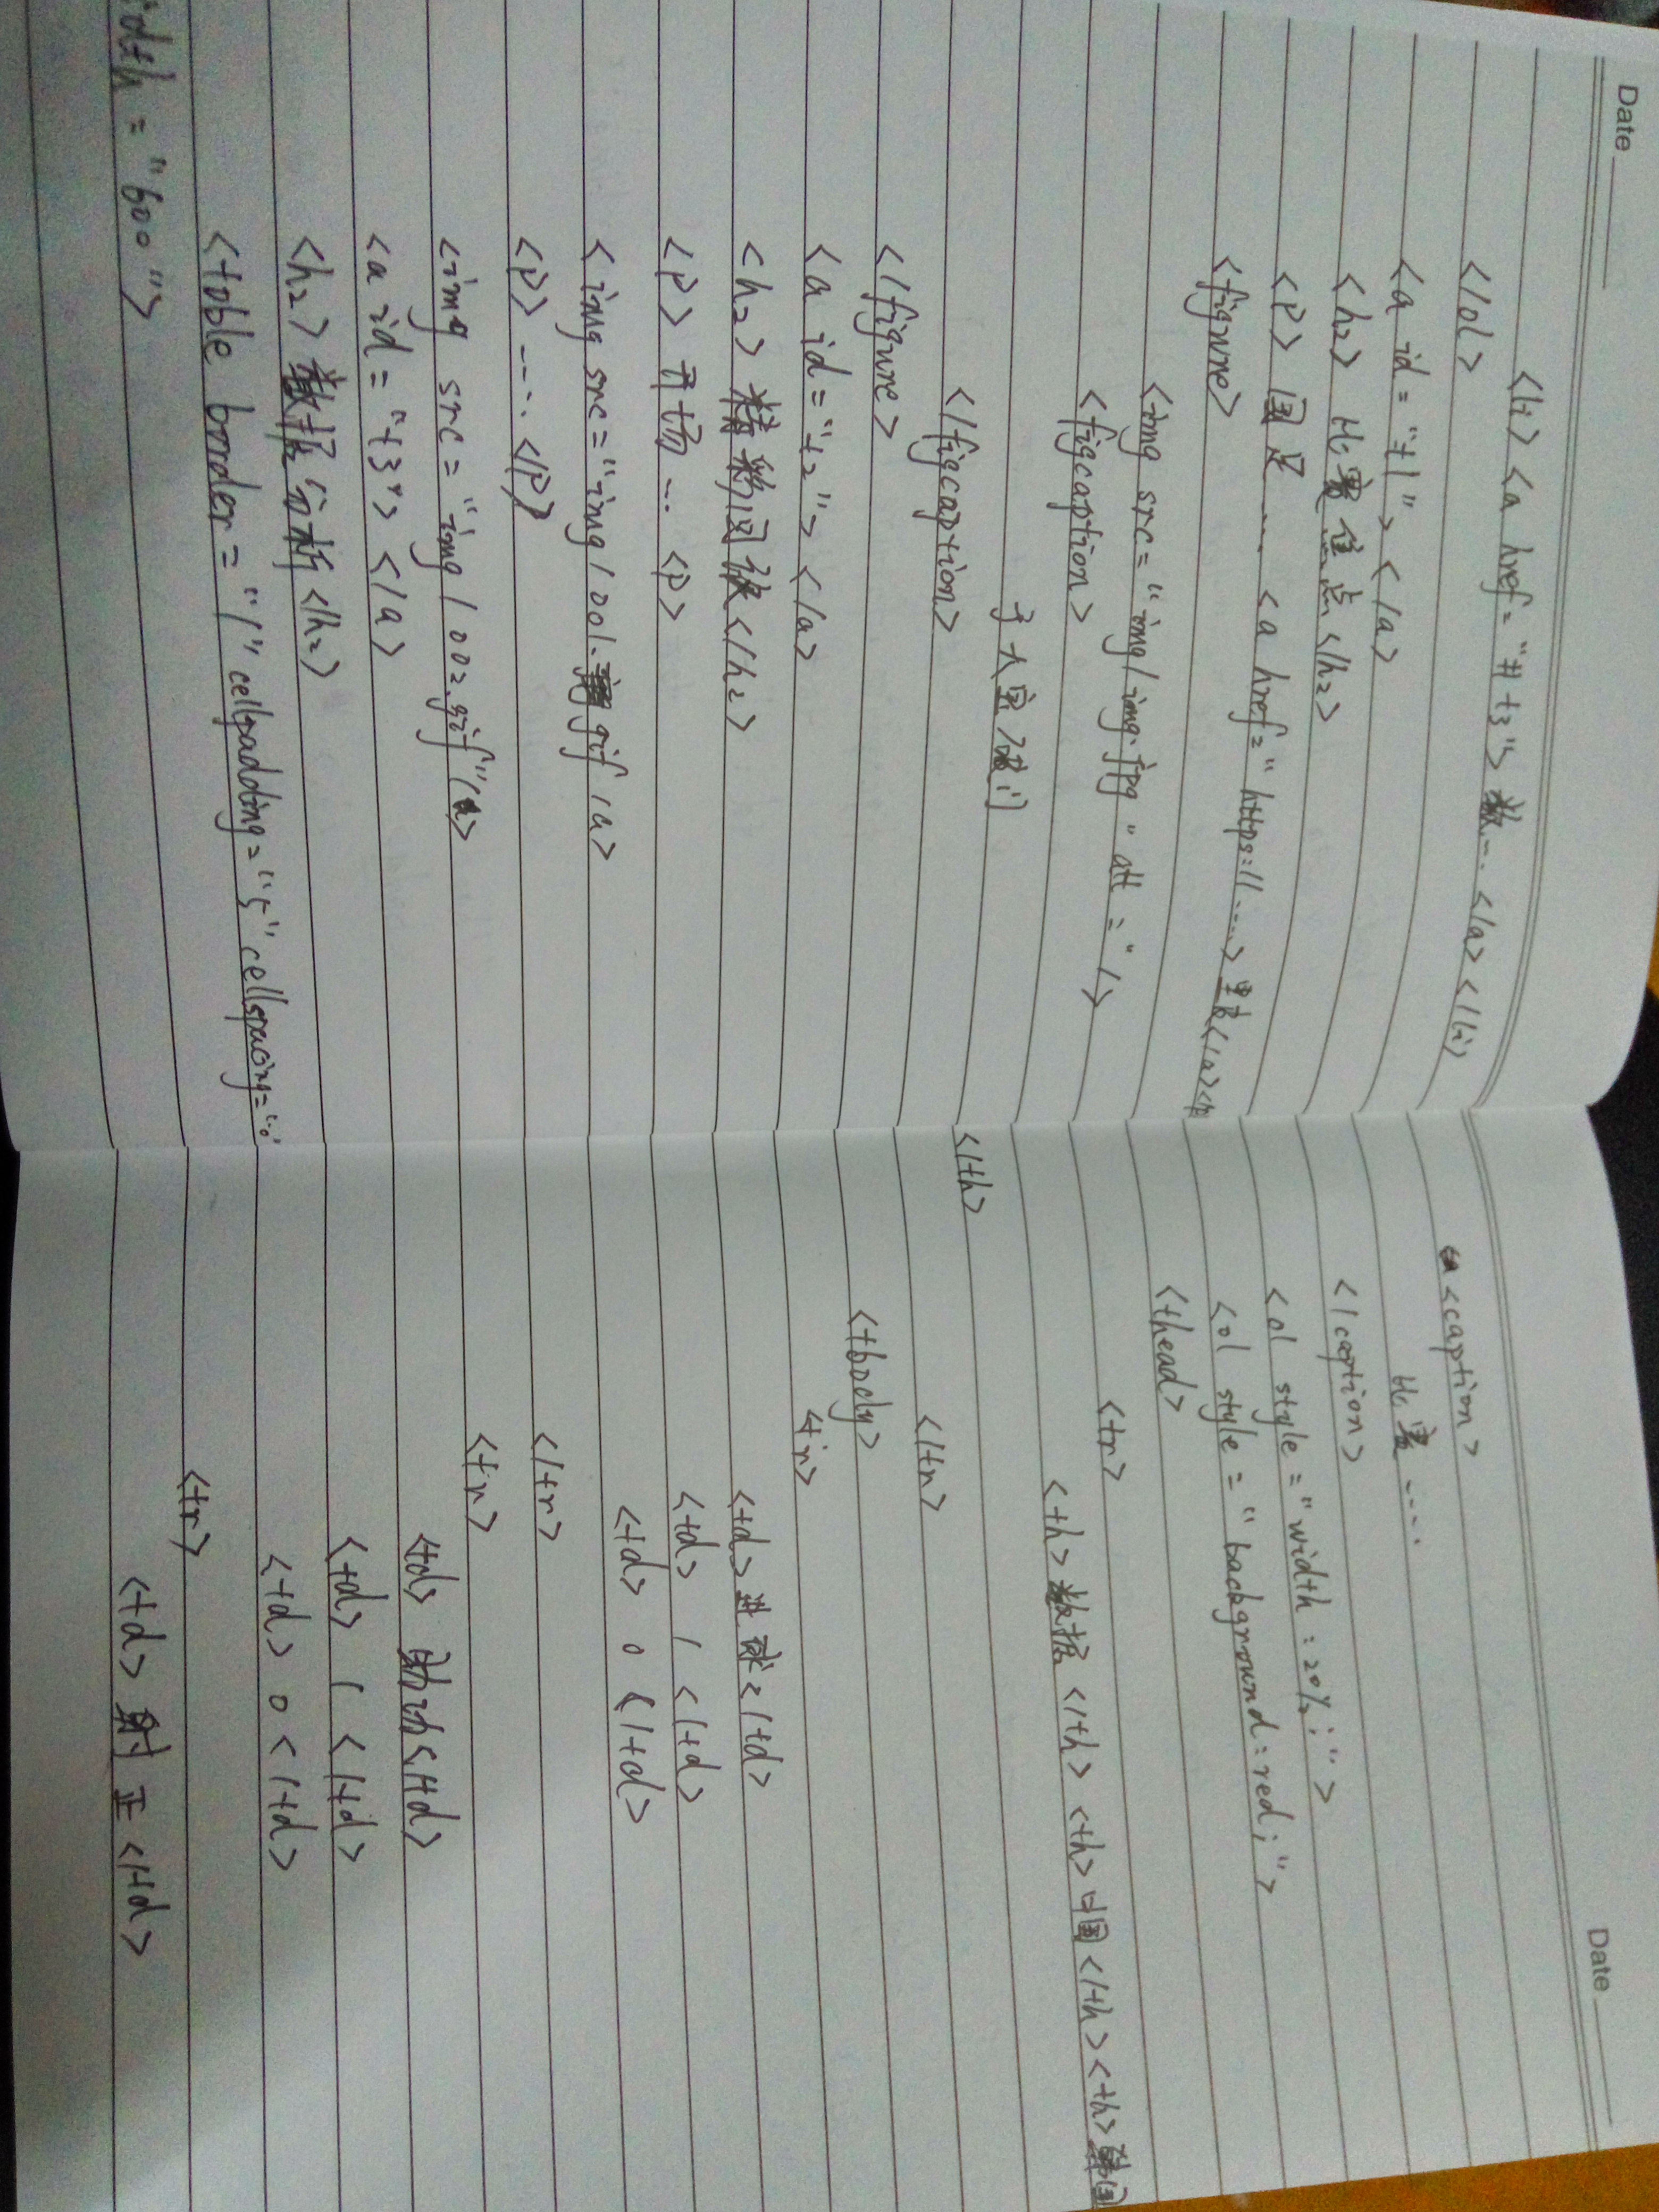 Date
<li><a href="#t3">数...</a></li>
</ol>
<a id="t1"></a>
<h2>比赛焦点</h2>
<p>国足....<a href="https://....>里皮</a></p>
<figure>
<img src="img/img.jpg" alt="" />
<figcaption>
于大宝破门
</figcaption>
</figure>
<a id="t2"></a>
<h2>精彩回放</h2>
<p>开场...<p>
<img src="img/001.gif/a>
<p>....</p>
<img src="img/002.gif"/a>
<a id="t3"></a>
<h2>数据分析</h2>
<table border="1" cellpadding="5" cellspacing="0"
width="600">
Date
<caption>
比赛....
</caption>
<ol style="width:20%;">
<ol style="background:red;">
<thead>
<tr>
<th>数据</th><th>中国</th><th>韩国
</th>
</tr>
<tbody>
<tr>
<td>进球</td>
<td>1</td>
<td>0</td>
</tr>
<tr>
<td>助攻</td>
<td>1</td>
<td>0</td>
<tr>
<td>射正</td>